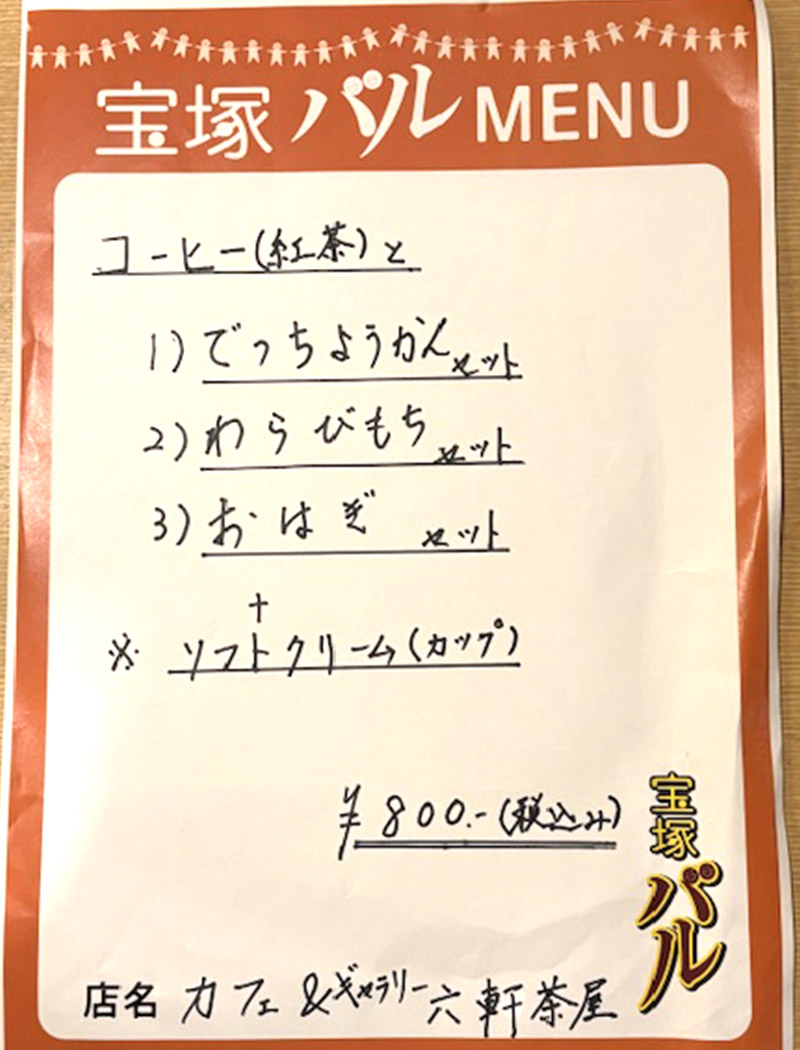 宝塚バルMENU
コーヒー(紅茶)と
1)でっちようかんセット
2)わらびもちセット
3)おはぎ セット
+
※ ソフトクリーム(カップ)
¥800.-(税込み)
宝塚
バル
店名 カフェ&ギャラリー六軒茶屋